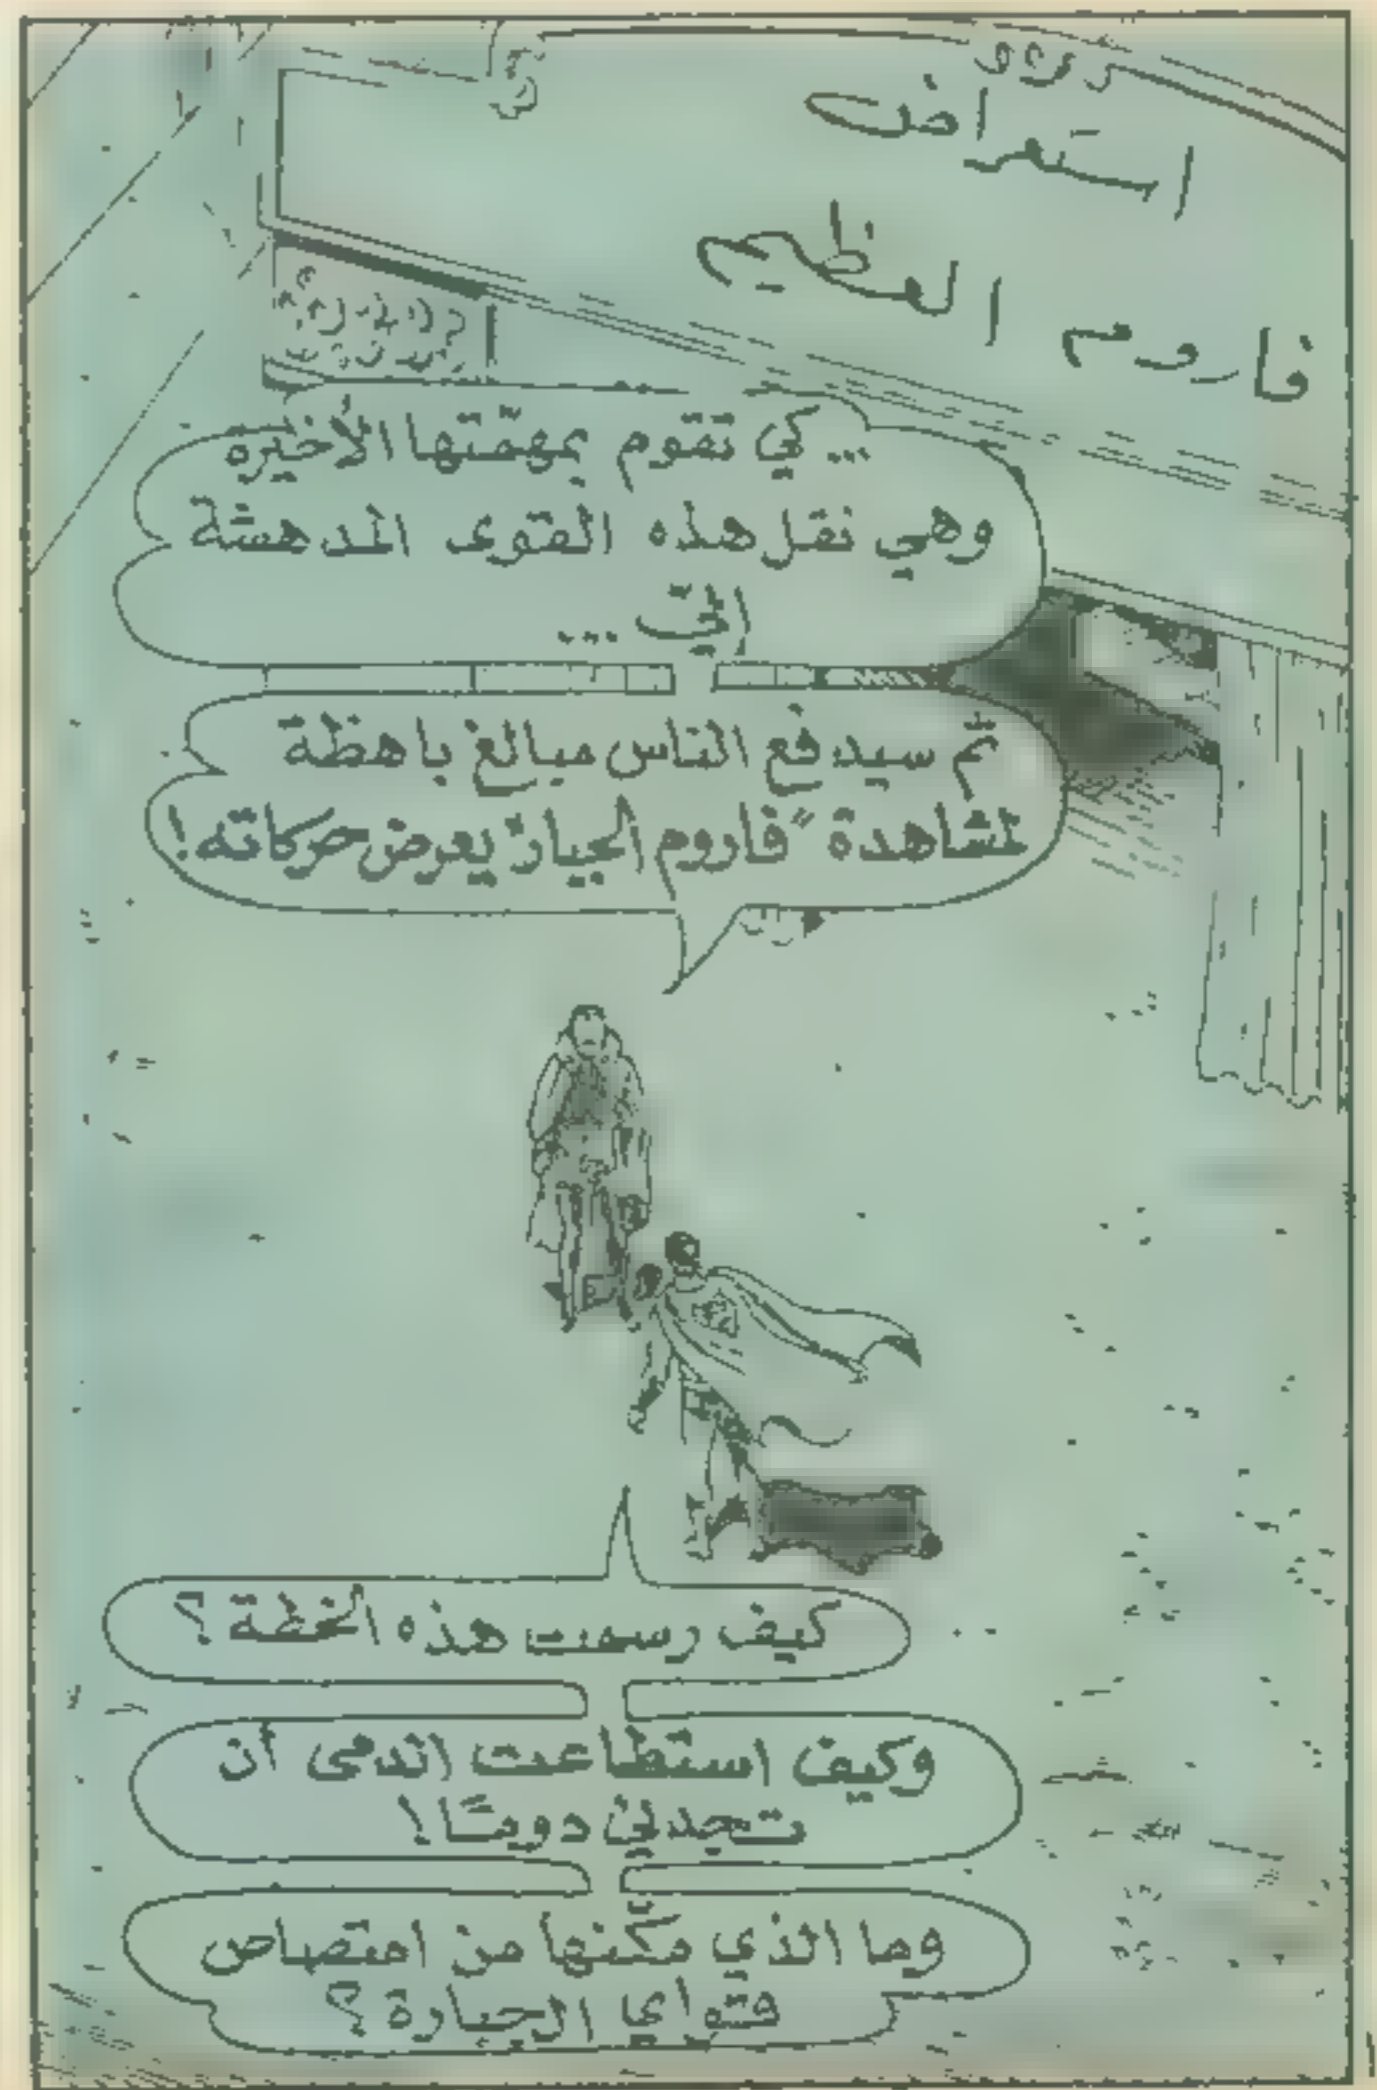 استعراض
فاروم العظيم
... كي تقوم بمهمّتها الأخيرة
وهي نقل هذه القوى المدهشة
إليّ ...
ثم سيدفع الناس مبالغ باهظة
لمشاهدة "فاروم الجبار" يعرض حركاته!
كيف رسمت هذه الخطة؟
وكيف استطاعت الدمى أن
تجدني دومًا!
وما الذي مكّنها من امتصاص
قواي الجبارة؟